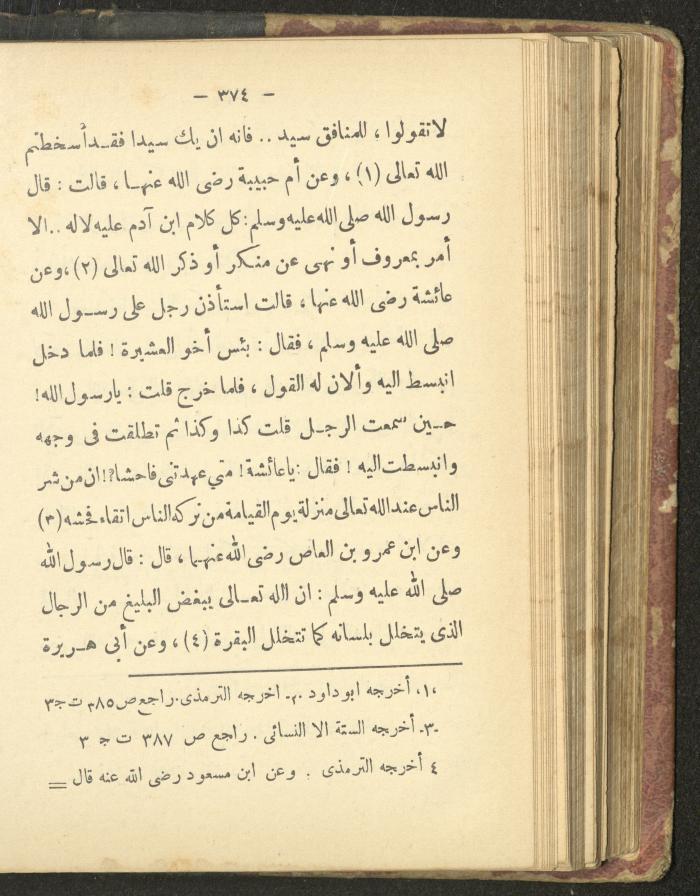 — ٣٧٤ —
لا تقولوا ، للمنافق سيد .. فانه ان يك سيدا فقد أسخطتم
الله تعالى (١) ، وعن أم حبيبة رضى الله عنها ، قالت : قال
رسول الله صلى الله عليه وسلم : كل كلام ابن آدم عليه لا له .. الا
أمر بمعروف أو نهى عن منكر أو ذكر الله تعالى (٢) ، وعن
عائشة رضى الله عنها ، قالت استأذن رجل على رسول الله
صلى الله عليه وسلم ، فقال : بئس أخو العشيرة ! فلما دخل
انبسط اليه وألان له القول ، فلما خرج قلت : يا رسول الله !
حين سمعت الرجل قلت كذا وكذا ثم تطلقت فى وجهه
وانبسطت اليه ! فقال : يا عائشة ! متي عهدتنى فاحشا ؟! ان من شر
الناس عند الله تعالى منزلة يوم القيامة من تركه الناس اتقاء فحشه (٣)
وعن ابن عمرو بن العاص رضى الله عنهما ، قال : قال رسول الله
صلى الله عليه وسلم : ان الله تعالى يبغض البليغ من الرجال
الذى يتخلل بلسانه كما تتخلل البقرة (٤) ، وعن أبي هريرة
،١، أخرجه ابو داود .٢. اخرجه الترمذى . راجع ص ٣٨٥ ت ج ٣
-٣- أخرجه الستة الا النسائى . راجع ص ٣٨٧ ت ج ٣
٤ أخرجه الترمذى . وعن ابن مسعود رضى الله عنه قال =